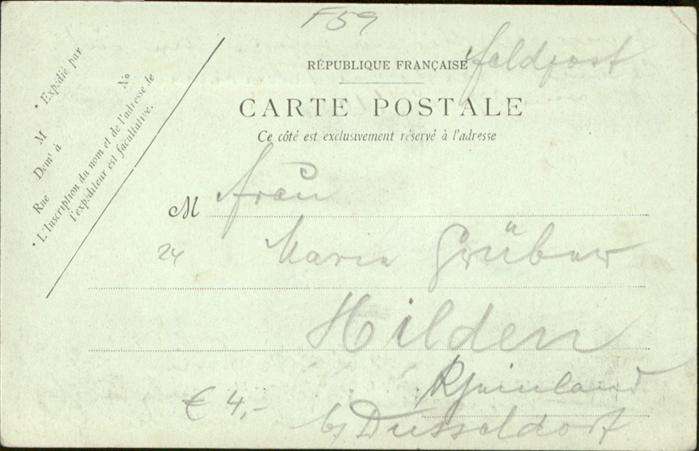 F59
RÉPUBLIQUE FRANÇAISE Feldpost
CARTE POSTALE
Ce côté est exclusivement réservé à l'adresse
• Expédié par
M
Dom.t à
Rue No
• L'Inscription du nom et de l'adresse de
l'expéditeur est facultative.
M Frau
24 Maria Grüber
Hilden
Rheinland
€ 4,- b/ Düsseldorf